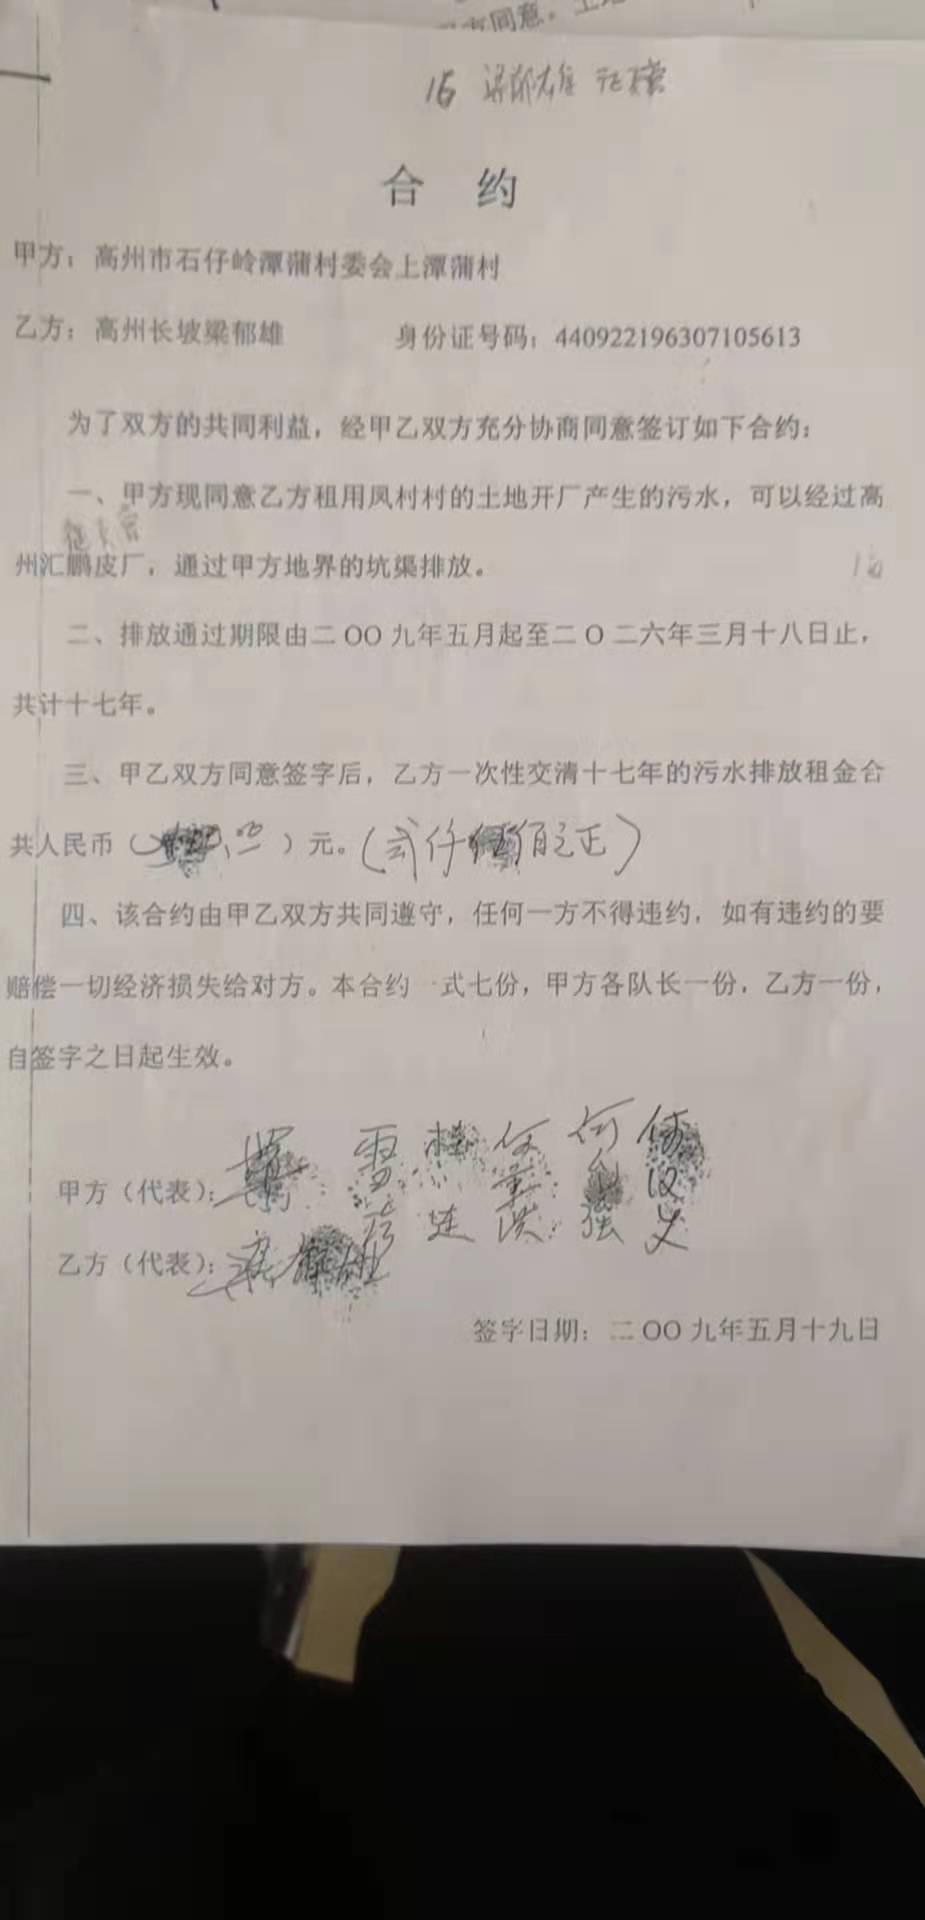 方同意。土
16 梁郁雄
合 约
甲方：高州市石仔岭潭蒲村委会上潭蒲村
乙方：高州长坡梁郁雄 身份证号码：440922196307105613
为了双方的共同利益，经甲乙双方充分协商同意签订如下合约：
一、甲方现同意乙方租用凤村村的土地开厂产生的污水，可以经过高
州汇鹏皮厂，通过甲方地界的坑渠排放。
16
二、排放通过期限由二OO九年五月起至二O二六年三月十八日止，
共计十七年。
三、甲乙双方同意签字后，乙方一次性交清十七年的污水排放租金合
共人民币（ ）元。（贰仟伍佰元正）
四、该合约由甲乙双方共同遵守，任何一方不得违约，如有违约的要
赔偿一切经济损失给对方。本合约 式七份，甲方各队长一份，乙方一份，
自签字之日起生效。
甲方（代表）：
乙方（代表）：梁郁雄
签字日期：二OO九年五月十九日